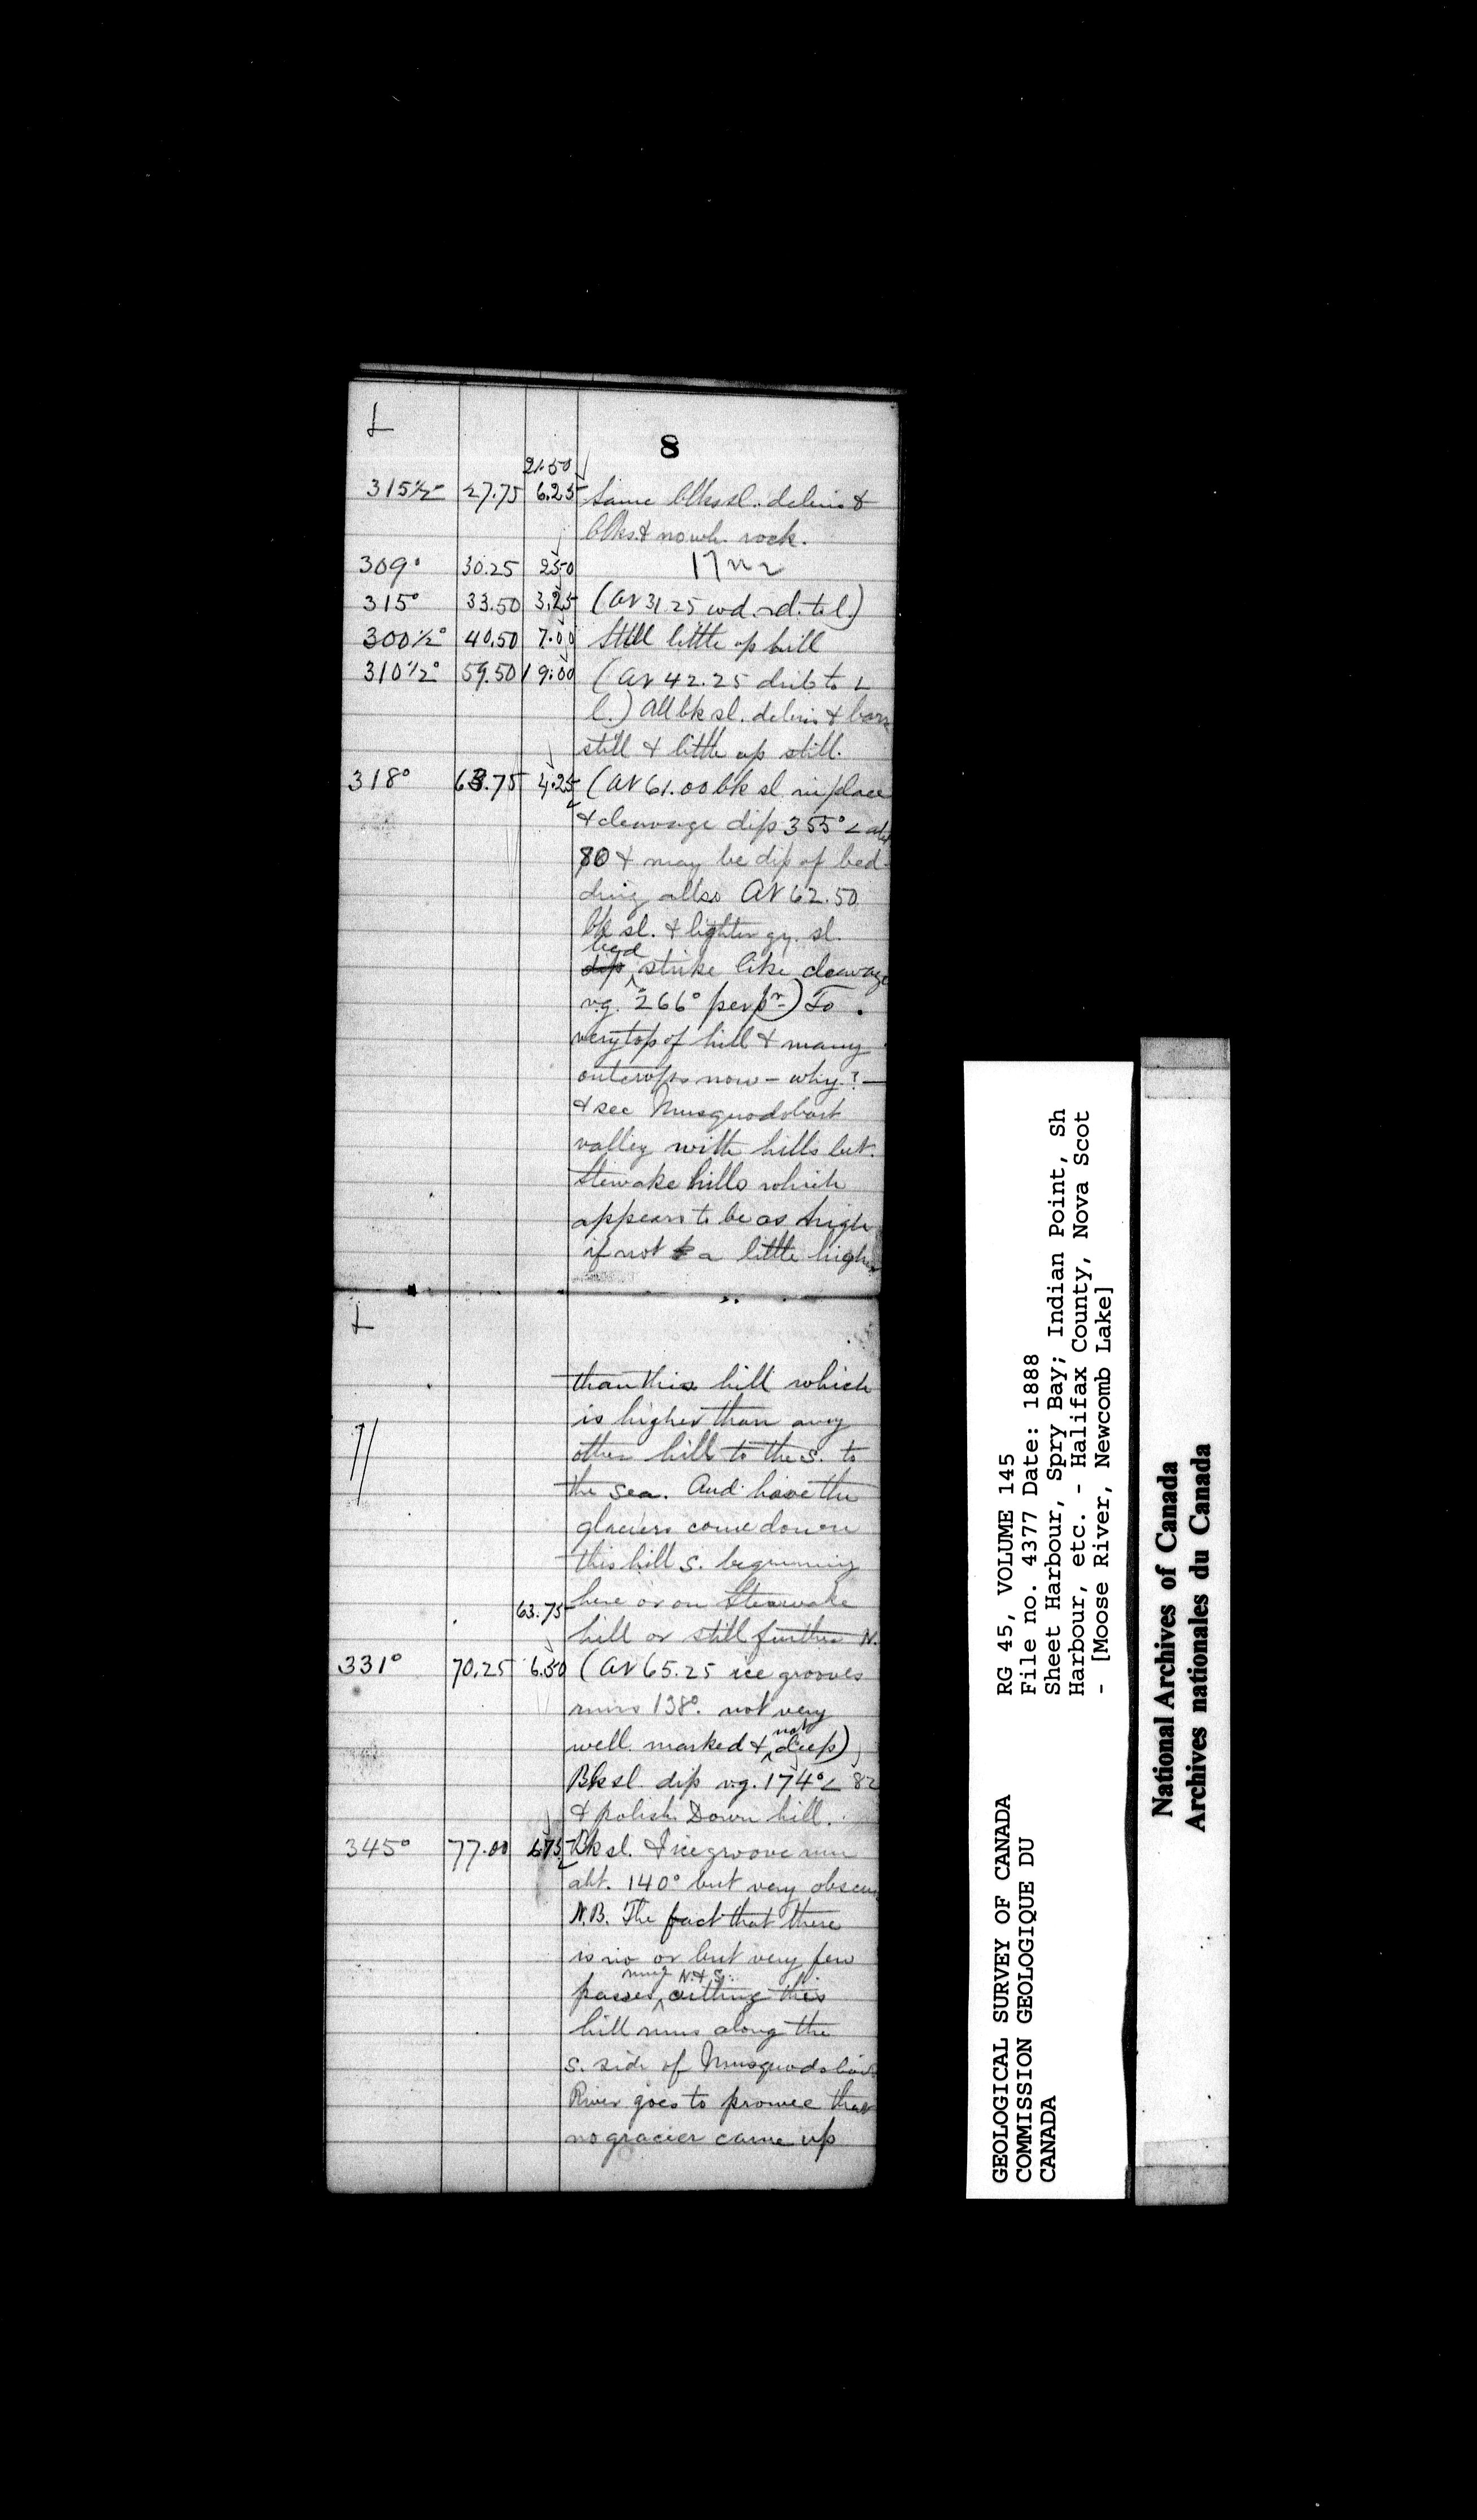 8
21.50
315½° 27.75 6.25 Same blksl. debris &
blks & no wh. rock.
309° 30.25 2.50
315° 33.50 3.25 (At 31.25 wd. rd. to l.)
300½° 40.50 7.00 Still little up hill
310½° 59.50 19.00 (At 42.25 to
l.) All bk sl. debris &
still & little up still.
318° 63.75 4.25 (At 61.00 bk sl. in place
& cleavage dip 355° <
80 & may be dip of bed-
ding allso At 62.50
bk sl. & lighter gy. sl.
bed
dip strike like cleavage
v.g. 266° perpr.) To
very top of hill & many
outcrops now - why? -
& see Musquodoboit
valley with hills bet.
Stewake hills which
appears to be as high
if not a little higher
than this hill which
is higher than any
other hills to the S. to
the sea. And have the
glaciers come down
this hill S. beginning
here or on Stewake
63.75
hill or still further N.
331° 70.25 6.50 (At 65.25 ice grooves
runs 138°. not very
not
well marked & deep)
Bk sl. dip v.g. 174° < 82
& polish. Down hill.
345° 77.00 6.75 Bk sl. & ice groove run
abt. 140° but very obscure
N.B. The fact that there
is no or but very few
N. & S.
passes cutting this
hill runs along the
S. side of Musquodoboit
River goes to prouve that
no gracier came up
RG 45, VOLUME 145
File no. 4377 Date: 1888
Sheet Harbour, Spry Bay; Indian Point, Sh
Harbour, etc. - Halifax County, Nova Scot
- [Moose River, Newcomb Lake]
GEOLOGICAL SURVEY OF CANADA
COMMISSION GEOLOGIQUE DU
CANADA
National Archives of Canada
Archives nationales du Canada